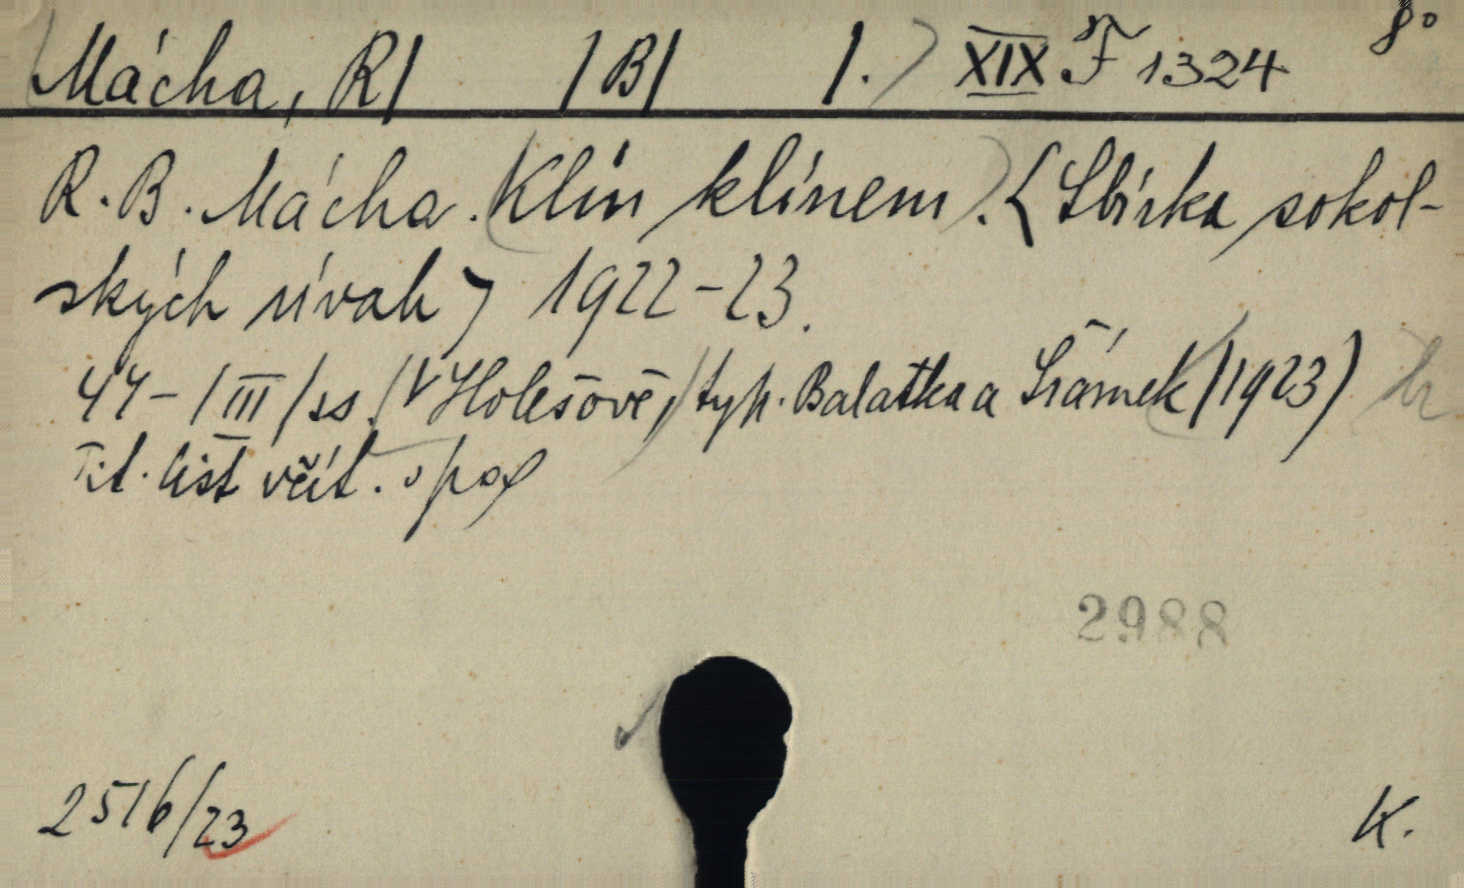 Mácha, R| |B| |.) XIX F 1324 8°
R. B. Mácha. Klín klínem. (Sbírka sokol-
ských úvah) 1922-23.
44-|III|ss. (V Holešově, typ. Balatka a Šrámek) (1923)
Tit. list včít. v pag
2988
2516/23
K.